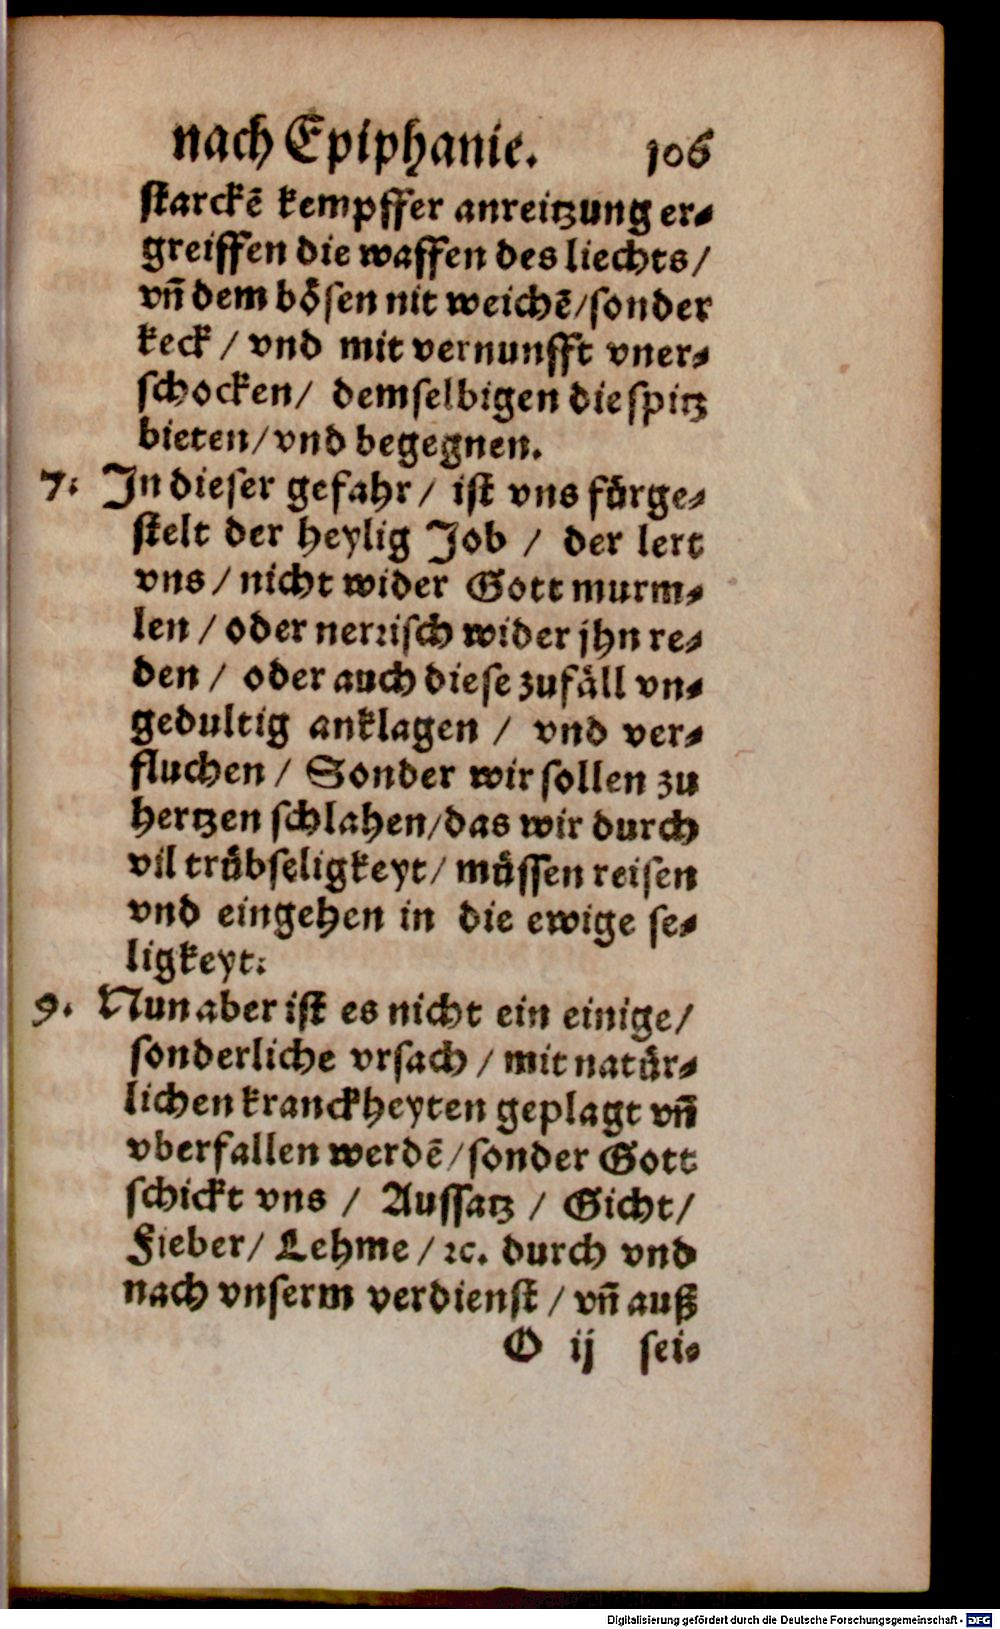 nach Epiphanie. 106
starckē kempffer anreitzung er⸗
greiffen die waffen des liechts/
vn̄ dem boͤsen nit weichē/sonder
keck / vnd mit vernunfft vner⸗
schocken/ demselbigen die spitz
bieten/vnd begegnen.
7: In dieser gefahr / ist vns fuͤrge⸗
stelt der heylig Job / der lert
vns / nicht wider Gott murm⸗
len / oder nerrisch wider jhn re⸗
den / oder auch diese zufaͤll vn⸗
gedultig anklagen / vnd ver⸗
fluchen / Sonder wir sollen zu
hertzen schlahen/das wir durch
vil truͤbseligkeyt/ muͤssen reisen
vnd eingehen in die ewige se⸗
ligkeyt:
9. Nun aber ist es nicht ein einige/
sonderliche vrsach / mit natuͤr⸗
lichen kranckheyten geplagt vn̄
vberfallen werdē/sonder Gott
schickt vns / Aussatz / Gicht/
Fieber/ Lehme / ꝛc. durch vnd
nach vnserm verdienst / vn̄ auß
O ij sei⸗
Digitalisierung gefördert durch die Deutsche Forschungsgemeinschaft - DFG